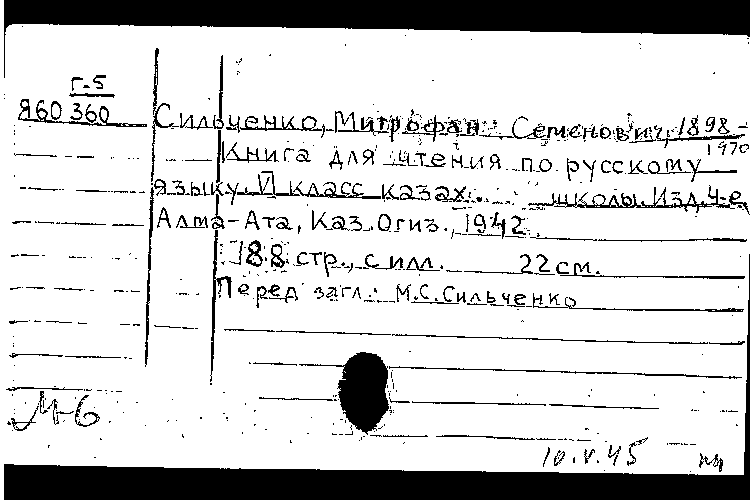 г-5
Я60 360
Сильченко, Митрофан Семенович, 1898-
1970
Книга для чтения по русскому
языку. VI класс казах. школы. Изд. 4-е
Алма-Ата, Каз. Огиз., 1942.
188 стр., с илл. 22 см.
Перед загл.: М.С. Сильченко
М-6
10.V.45